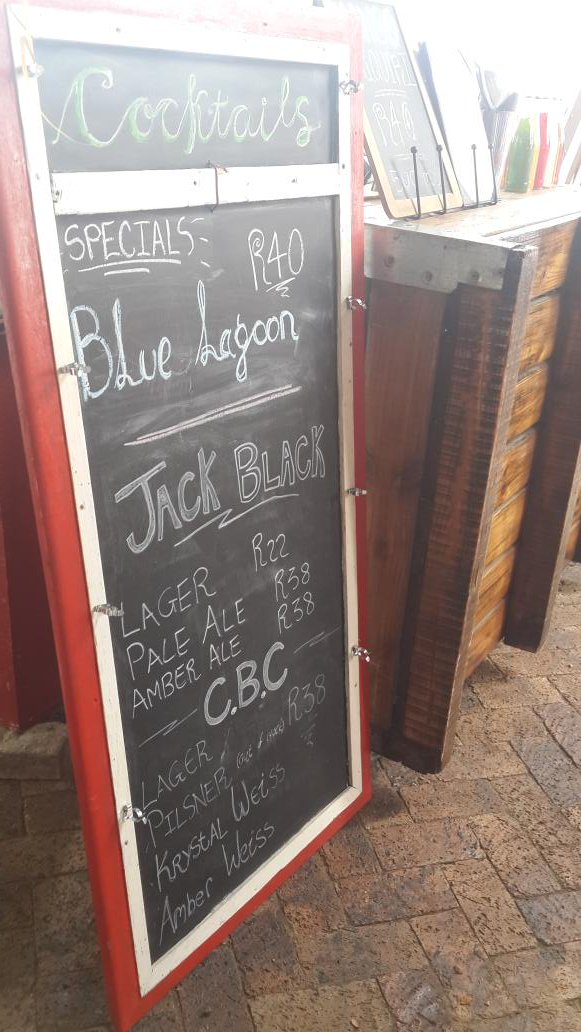 Cocktails
SPECIALS R40
Blue Lagoon
JACK BLACK
LAGER R22
PALE ALE R38
AMBER ALE R38
C.B.C
LAGER R38
PILSNER
KRYSTAL WEISS
Amber Weiss
R40